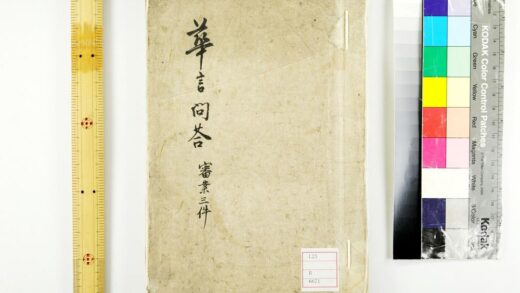 華言問答
審業三件
125
8
6621
KODAK Color Control Patches
Blue
Cyan
Green
Yellow
Red
Magenta
White
3/Color
Kodak